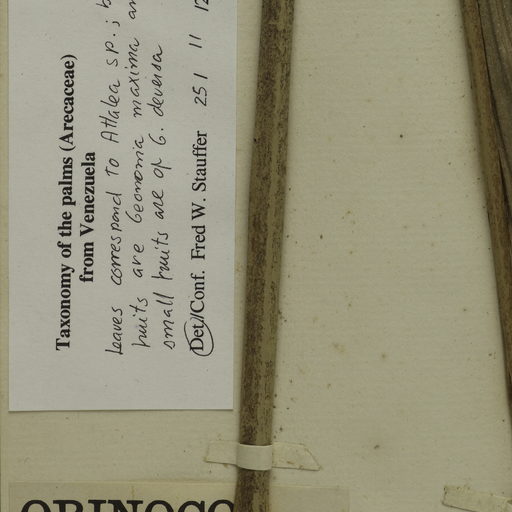 Taxonomy of the palms (Arecaceae)
from Venezuela
Leaves correspond to Attalea sp.;
fruits are Geonoma maxima an
small fruits are of G. deversa
Det./Conf. Fred W. Stauffer 25 1 11 12
ORINOCO